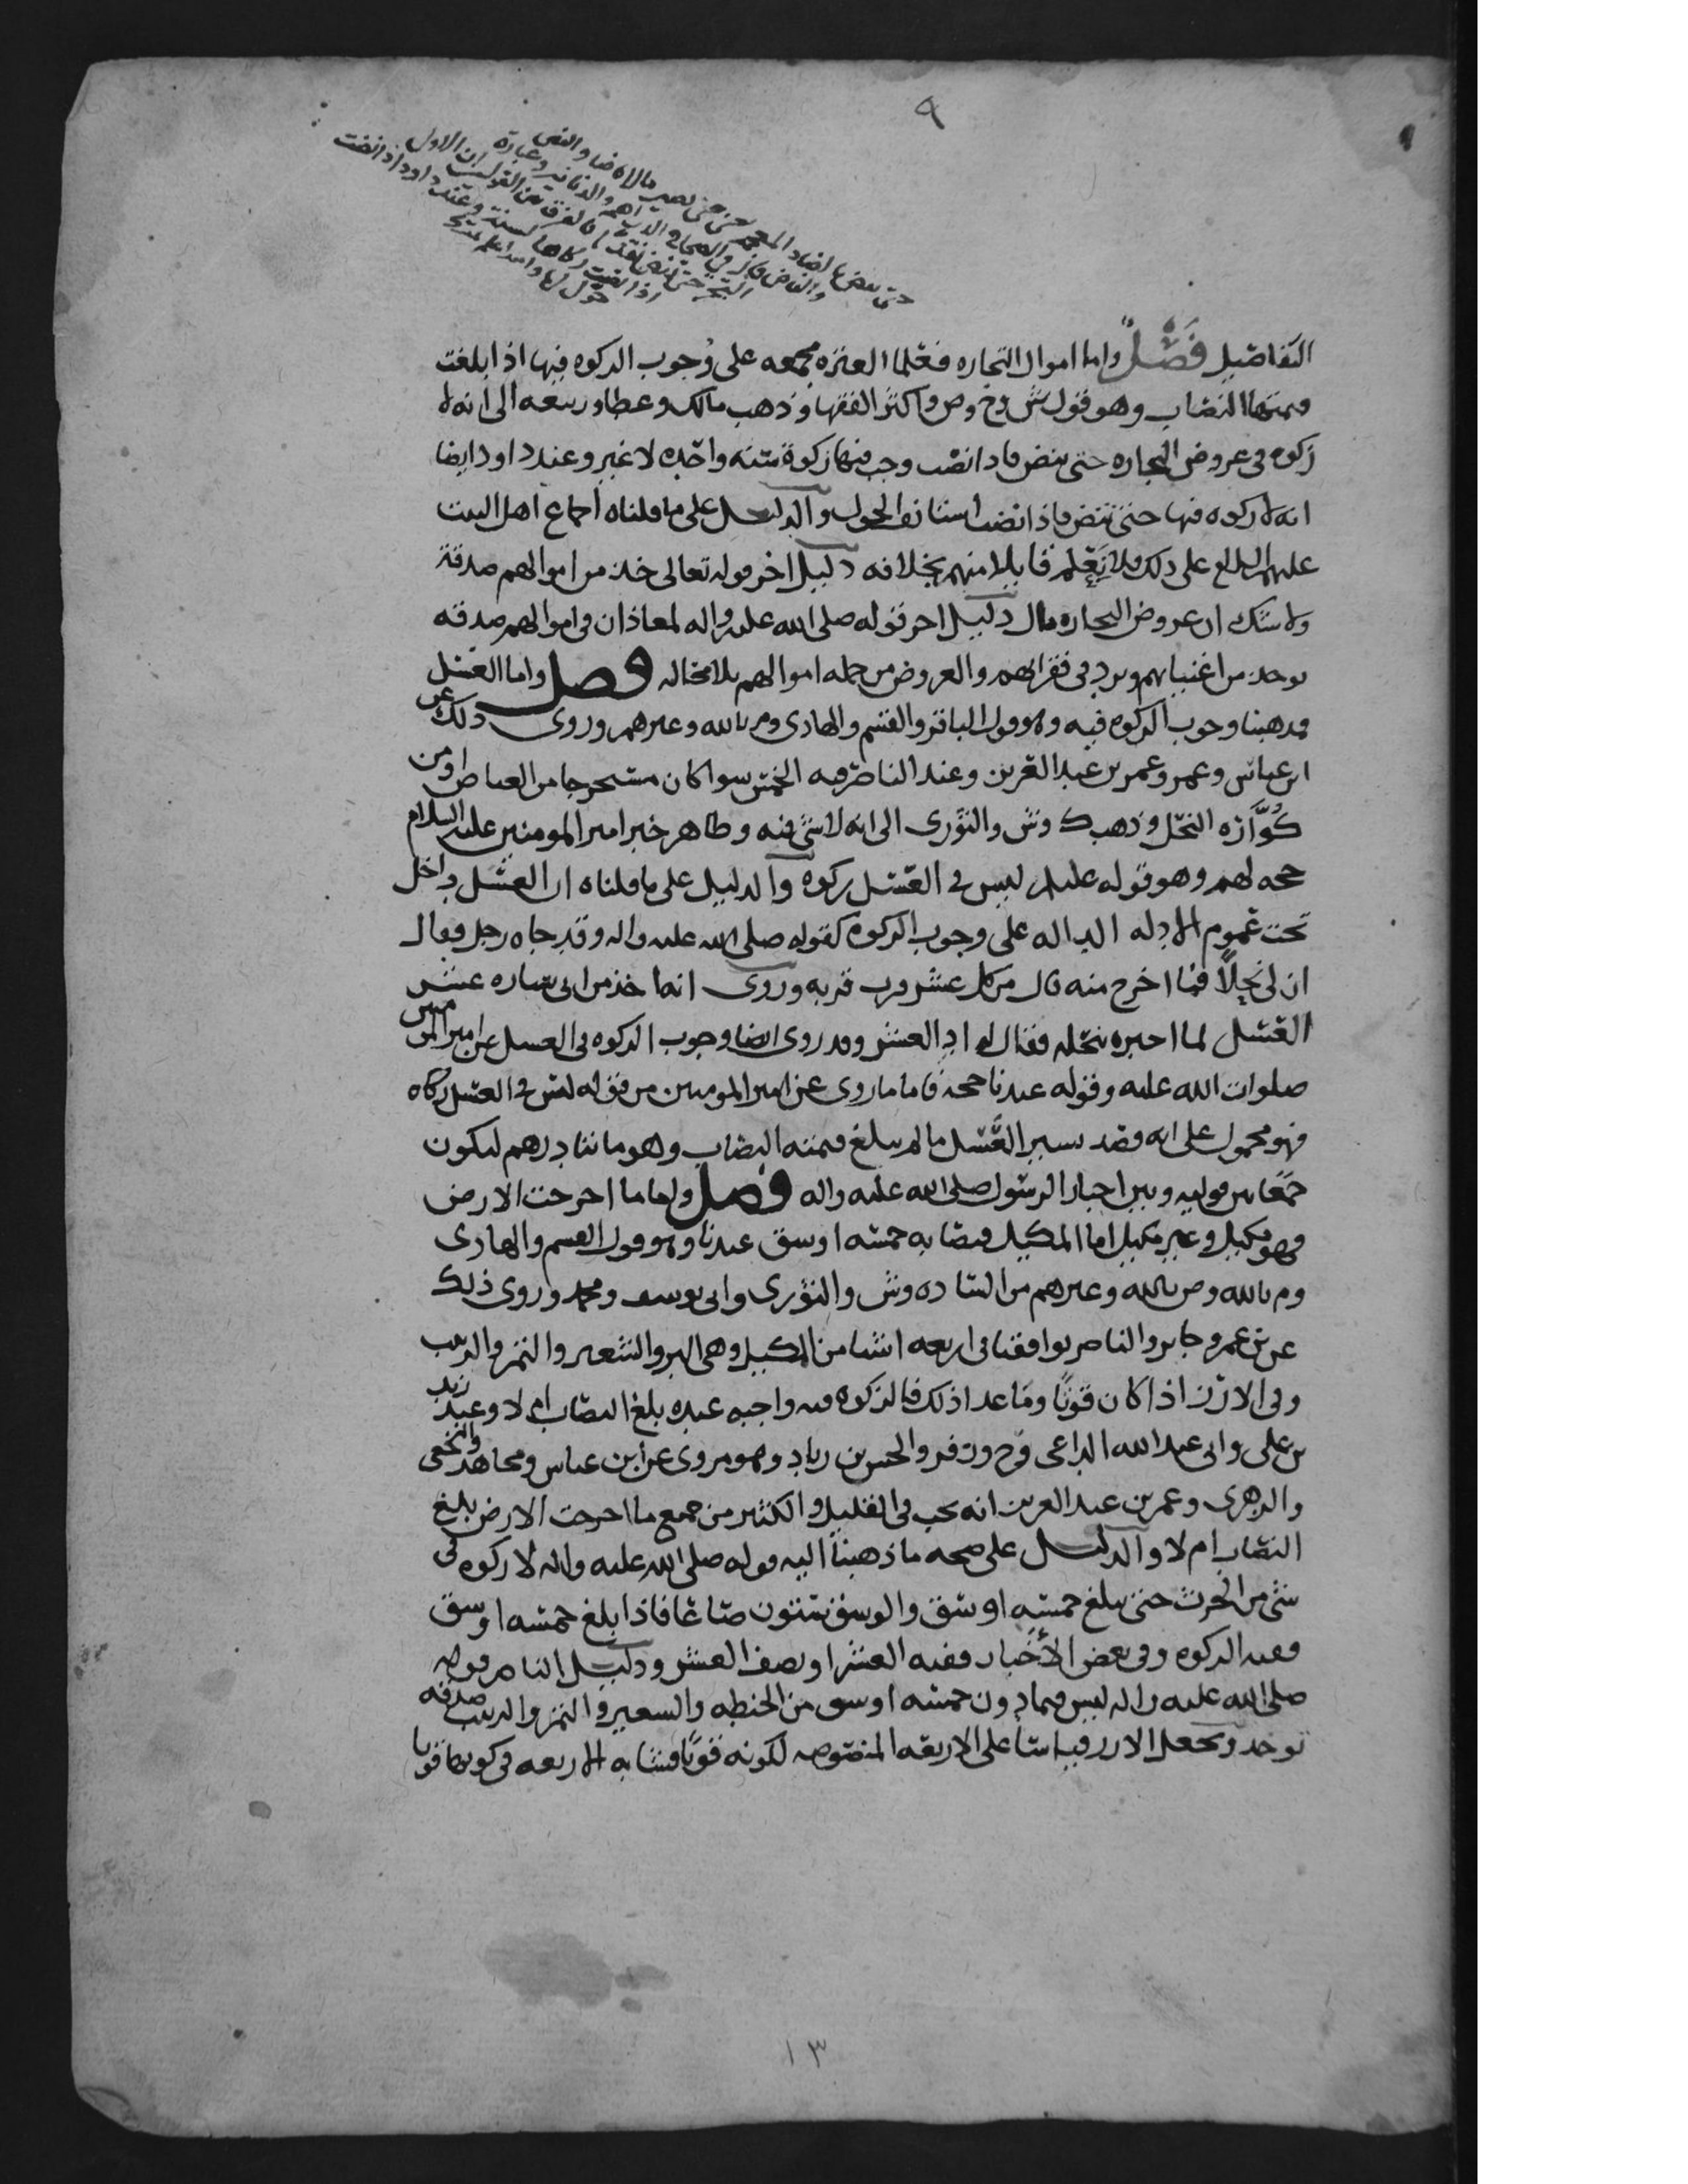 ٩
التفاصيل فصل واما اموال التجاره فعلما العتره مجمعه على وجوب الزكوه فيها اذا بلغت
قيمتها النصاب وهو قول ش وح وص واكثر الفقها وذهب مالك وعطا وربيعه الى انه لا
زكوه في عروض التجاره حتى ينض فاذا نضت وجب فيها زكوة سنه واحده لا غير وعند داود ايضا
انه لا زكوه فيها حتى تنض فاذا نضت استانف الحول والدليل على ما قلناه اجماع اهل البيت
عليهم السلام على ذلك فلا نعلم قايلا منهم بخلافه دليل اخر قوله تعالى خذ من اموالهم صدقة
ولا شك ان عروض التجاره مال دليل اخر قوله صلى الله عليه واله لمعاذ ان في اموالهم صدقه
توخذ من اغنيايهم وترد في فقرايهم والعروض من جمله اموالهم بلا محاله فصل واما العسل
فمذهبنا وجوب الزكوه فيه وهو قول الباقر والقسم والهادي وم بالله وغيرهم وروي ذلك عن
ابن عباس وعمر وعمر بن عبد العزيز وعند الناصر فيه الخمس سوا كان مستخرجا من الغياض او من
كوارة النحل وذهب ك وش والثوري الى انه لا شي فيه وظاهر خبر امير المومنين عليه السلام
حجه لهم وهو قوله عليلم ليس في العسل زكوة والدليل على ما قلناه ان العسل داخل
تحت عموم الادله الداله على وجوب الزكوه كقوله صلى الله عليه واله وقد جاه رجل فقال
ان لي نحلا فما اخرج منه قال من كل عشر قرب قربه وروي انه اخذ من ابي سياره عشر
العسل لما اخبره بنحله فقال له اد العشر وقد روي ايضا وجوب الزكوه في العسل عن امير المومنين
صلوات الله عليه وقوله عندنا حجة فاما ما روي عن امير المومنين من قوله ليس في العسل زكاه
فهو محمول على انه قصد يسير العسل ما لم يبلغ قيمته النصاب وهو مائتا درهم ليكون
جمعا بين قوليه وبين اخبار الرسول صلى الله عليه واله فصل واما ما اخرجت الارض
فهو مكيل وغير مكيل اما المكيل فنصابه خمسه اوسق عندنا وهو قول القسم والهادي
وم بالله وص بالله وغيرهم من الساده وش والثوري وابي يوسف ومحمد وروي ذلك
عن بن عمر وجابر والناصر يوافقنا في اربعه اشيا من المكيل وهي البر والشعير والتمر والزبيب
وفي الارز اذا كان قوتا وما عدا ذلك فالزكوه فيه واجبه عنده بلغ النصاب ام لا وعند زيد
بن علي وابي عبد الله الداعي وح وزفر والحسن بن زياد وهو مروي عن ابن عباس ومجاهد والنخعي
والزهري وعمر بن عبد العزيز انه يجب في القليل والكثير من جميع ما اخرجت الارض بلغ
النصاب ام لا والدليل على صحه ما ذهبنا اليه قوله صلى الله عليه واله لا زكوه في
شي من الحرث حتى يبلغ خمسه اوسق والوسق ستون صاعا فاذا بلغ خمسه اوسق
ففيه الزكوه وفي بعض الاخبار ففيه العشر او نصف العشر ودليل الناصر قوله
صلى الله عليه واله ليس فيما دون خمسه اوسق من الحنطه والشعير والتمر والزبيب صدقه
توخذ ونجعل الارز قياسا على الاربعه المنصوصه لكونه قوتا فشابه الاربعه في كونها قوتا
١٣